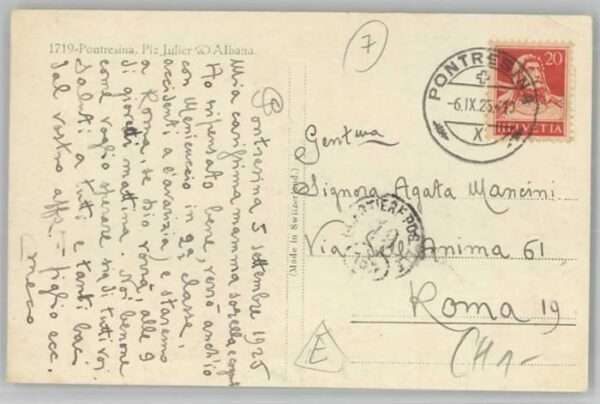 1719-Pontresina, Piz Julier Albana
Pontresina 5 settembre 1925
Mia carissima mamma sorella e
Ho ripensato bene, verrò anch'io
con Menicuccio in 2ª classe,
accidenti a l'avarizia) e staremo
a Roma, se Dio vorrà, alle 9
di giovedì mattina. Noi benone
come voglio sperare sia di tutti voi.
Saluti a tutti e tanti baci
dal vostro aff. figlio ecc.
Meco
(Made in Switzerland.)
7
PONTRESINA
-6.IX.25
X
20
HELVETIA
Gent.ma
Signora Agata Mancini
Via dell'Anima 61,
Roma 19
E
CH 1-